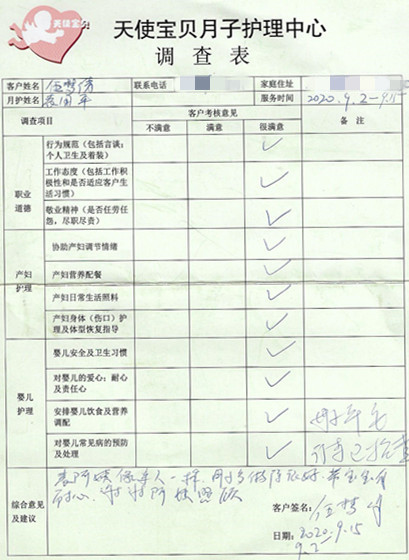 天使宝贝
天使宝贝月子护理中心
调查表
客户姓名 联系电话 家庭住址
月护姓名 服务时间 2020.9.2-9.15
调查项目 客户考核意见 备注
不满意 满意 很满意
职业道德
行为规范(包括言谈;个人卫生及着装) ✓
工作态度(包括工作积极性和是否适应客户生活习惯) ✓
敬业精神(是否任劳任怨,尽职尽责) ✓
产妇护理
协助产妇调节情绪 ✓
产妇营养配餐 ✓
产妇日常生活照料 ✓
产妇身体(伤口)护理及体型恢复指导 ✓
婴儿护理
婴儿安全及卫生习惯 ✓
对婴儿的爱心;耐心及责任心 ✓
安排婴儿饮食及营养调配 ✓
对婴儿常见病的预防及处理 ✓
综合意见及建议
阿姨像家人一样 做饭很好 带宝宝有
耐心 谢谢阿姨
客户签名:
日期: 2020.9.15
9.2